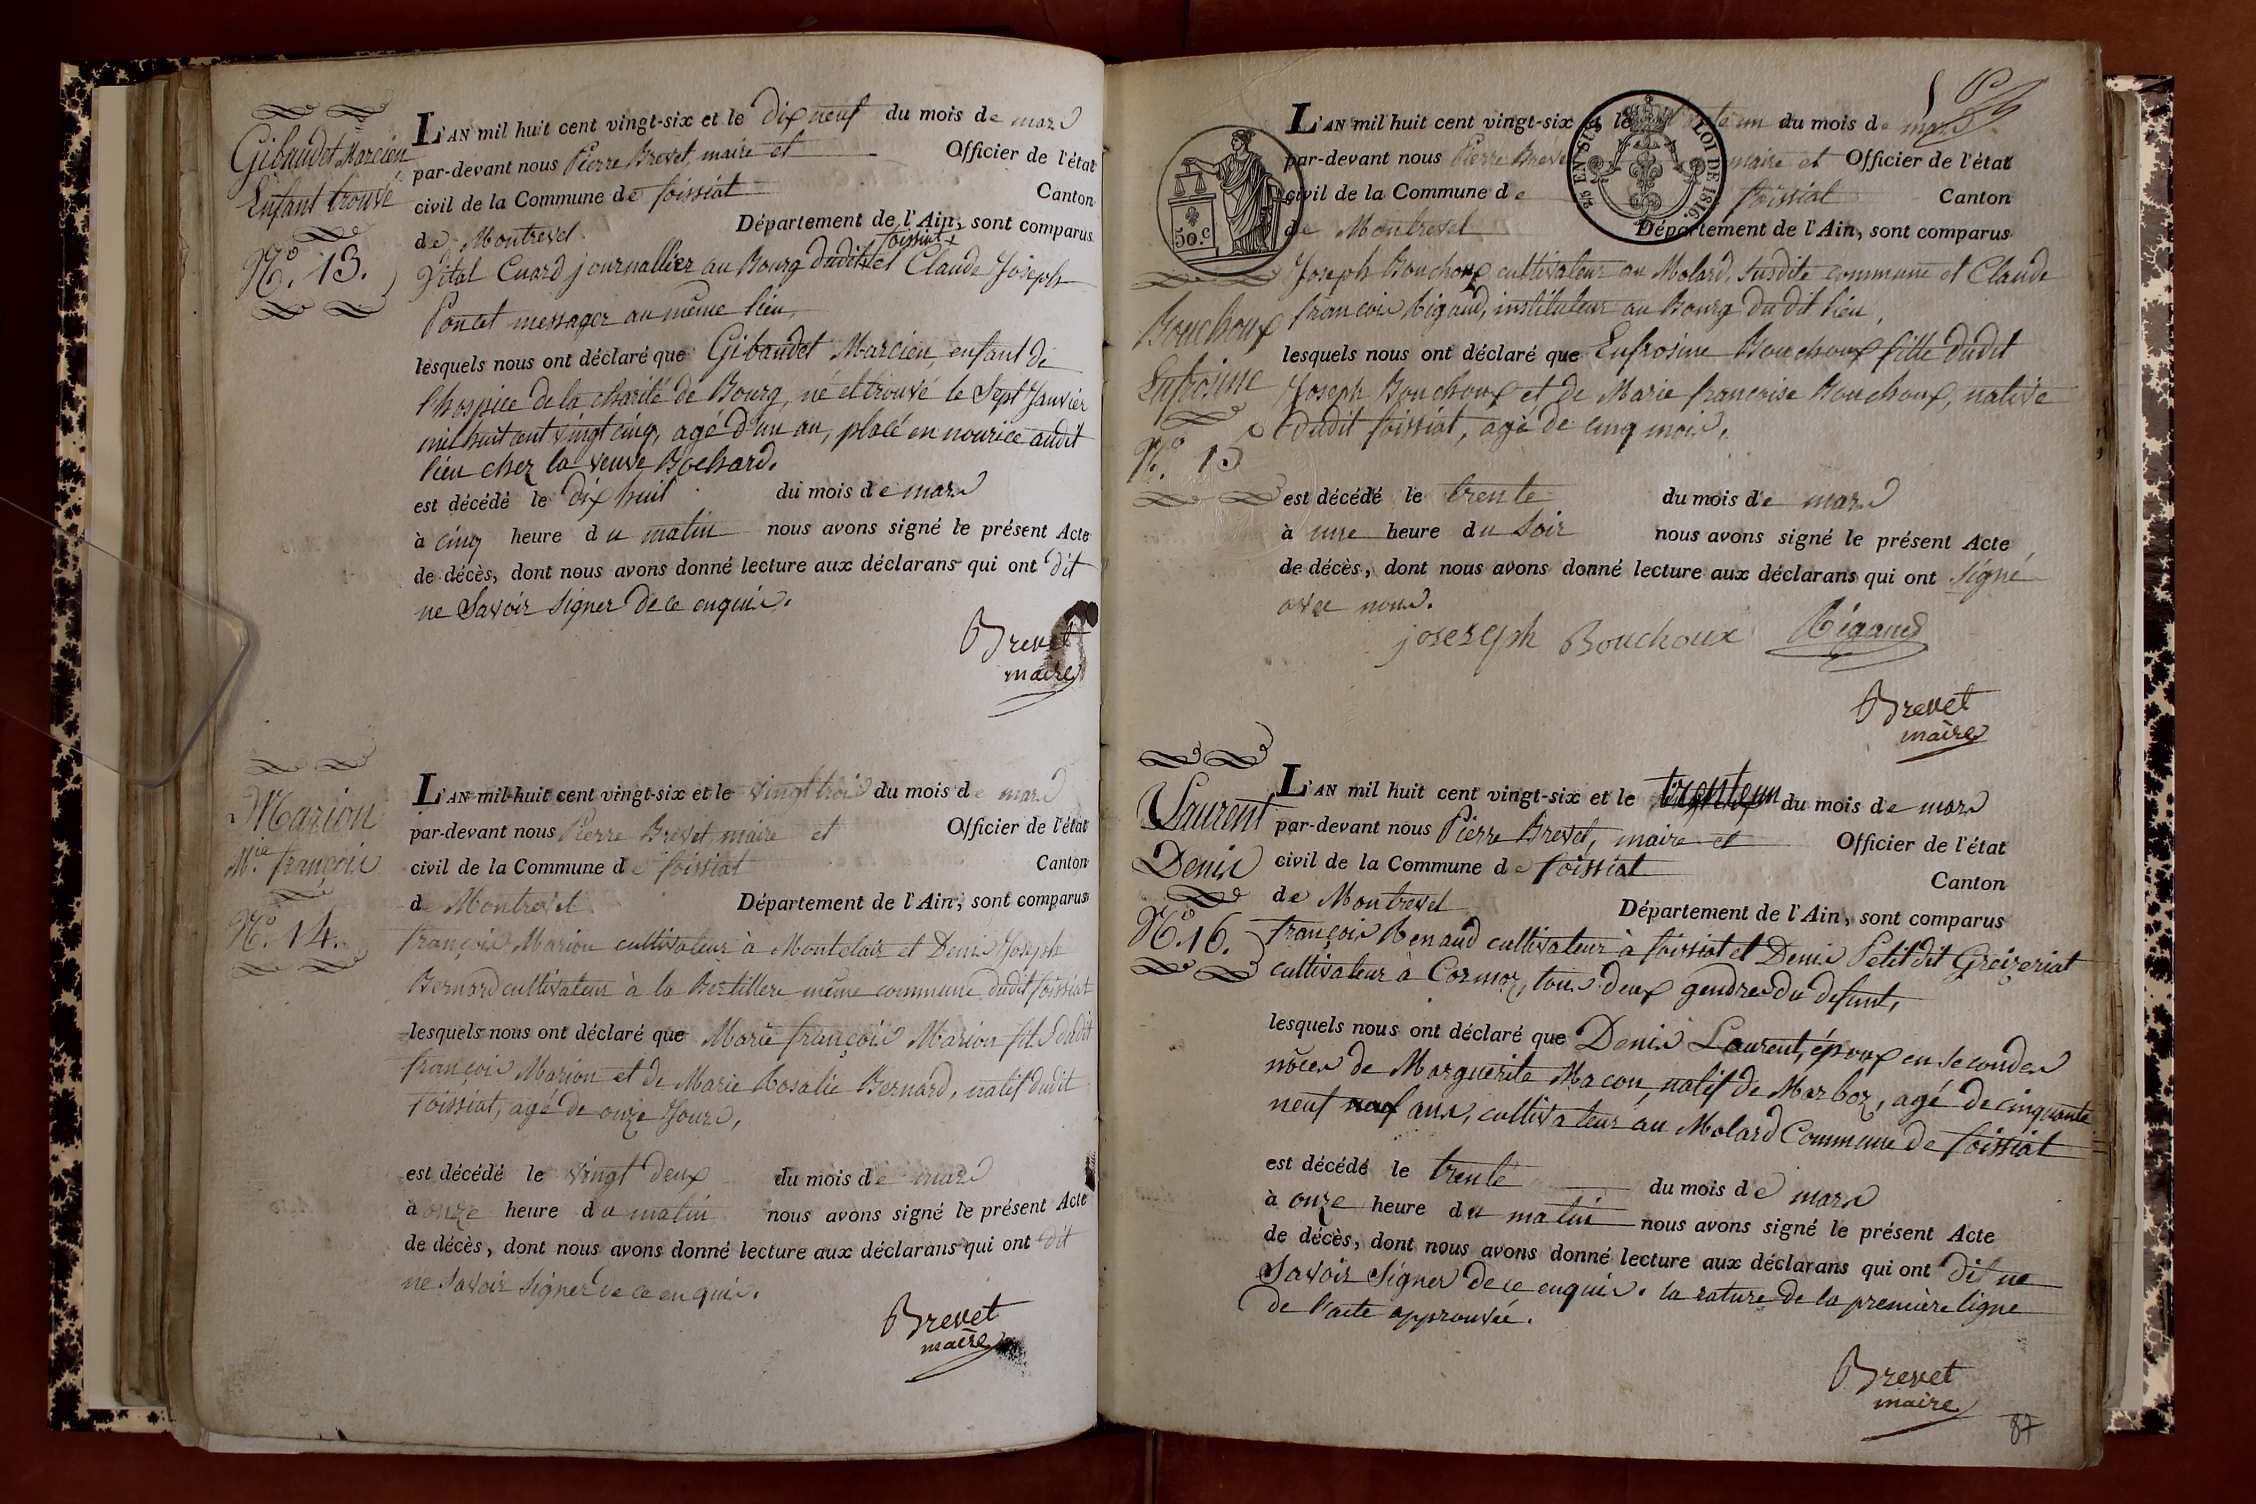 Gibaudet Marcien
Enfant trouvé
N.º 13.
L'AN mil huit cent vingt-six et le dix neuf du mois de mars
par-devant nous Pierre Brevet, maire et Officier de l'état
civil de la Commune de foissiat Canton
de Montrevel Département de l'Ain, sont comparus
foissiat
Vital Cuard journallier au Bourg dudit et Claude Joseph
Poncet messager au même lieu,
lesquels nous ont déclaré que Gibaudet Marcien, enfant de
l'hospice de la charité de Bourg, né et trouvé le Sept Janvier
mil huit cent vingt cinq, agé d'un an, placé en nourice audit
lieu chez la veuve Bochard.
est décédé le dix huit du mois de mars
à cinq heure du matin nous avons signé le présent Acte
de décès, dont nous avons donné lecture aux déclarans qui ont dit
ne Savoir signer de ce enquis.
Brevet
maire
Marion
M.ie françois
N.º 14.
L'AN mil huit cent vingt-six et le vingt trois du mois de mars
par-devant nous Pierre Brevet, maire et Officier de l'état
civil de la Commune de foissiat Canton
de Montrevel Département de l'Ain, sont comparus
françois Marion cultivateur à Montclair et Denis Joseph
Bernard cultivateur à la Bertillere même commune dudit foissiat
lesquels nous ont déclaré que Marie françois Marion fils dudit
françois Marion et de Marie Rosalie Bernard, natif dudit
foissiat, agé de onze Jours,
est décédé le vingt deux du mois de mars
à onze heure du matin nous avons signé le présent Acte
de décès, dont nous avons donné lecture aux déclarans qui ont dit
ne Savoir Signer de ce enquis.
Brevet
maire
50.c
25 EN SUS
LOI DE 1816.
Bouchoux
Eufrosine
N.º 15
L'AN mil huit cent vingt-six et le trente un du mois de mars
par-devant nous Pierre Brevet maire et Officier de l'état
civil de la Commune de foissiat Canton
de Montrevel Département de l'Ain, sont comparus
Joseph Bouchoux cultivateur au Molard, susdite commune et Claude
françois Rigaud, instituteur au Bourg du dit lieu,
lesquels nous ont déclaré que Eufrosine Bouchoux fille dudit
Joseph Bouchoux et de Marie françoise Bouchoux, native
dudit foissiat, agé de cinq mois,
est décédé le trente du mois de mars
à une heure du Soir nous avons signé le présent Acte
de décès, dont nous avons donné lecture aux déclarans qui ont signé
avec nous.
joseseph Bouchoux Rigaud
Brevet
maire
Laurent
Denis
N.º 16.
L'AN mil huit cent vingt-six et le trente un du mois de mars
par-devant nous Pierre Brevet, maire et Officier de l'état
civil de la Commune de foissiat Canton
de Montrevel Département de l'Ain, sont comparus
françois Renaud cultivateur à foissiat et Denis Petit dit Greizeriat
cultivateur à Cormoz, tous deux gendres du defunt,
lesquels nous ont déclaré que Denis Laurent, époux en secondes
nôces de Marguerite Macon, natif de Marboz, agé de cinquante
neuf neuf ans, cultivateur au Molard Commune de foissiat
est décédé le trente du mois de mars
à onze heure du matin nous avons signé le présent Acte
de décès, dont nous avons donné lecture aux déclarans qui ont dit ne
Savoir Signer de ce enquis. la rature de la première ligne
de l'acte approuvée.
Brevet
maire
87